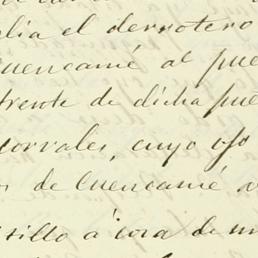 lia el derrotero
uencamé al pue
frente de dicha pue
corrales, cuyo ojo
s de Cuencamé
sillo á cosa de un